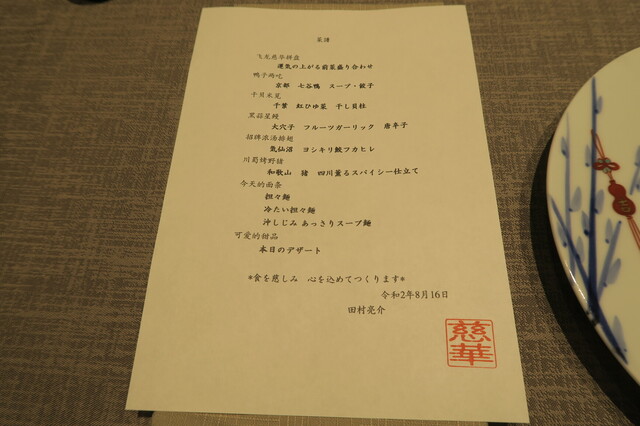 菜譜
飞龙慈华拼盘
運気の上がる前菜盛り合わせ
鸭子两吃
京都 七谷鴨 スープ・餃子
干贝米苋
千葉 紅ひゆ菜 干し貝柱
黑蒜星鳗
大穴子 フルーツガーリック 唐辛子
招牌浓汤排翅
気仙沼 ヨシキリ鮫フカヒレ
川蜀烤野猪
和歌山 猪 四川薫るスパイシー仕立て
今天的面条
担々麺
冷たい担々麺
沖しじみ あっさりスープ麺
可爱的甜品
本日のデザート
*食を慈しみ 心を込めてつくります*
令和2年8月16日
田村亮介
慈華